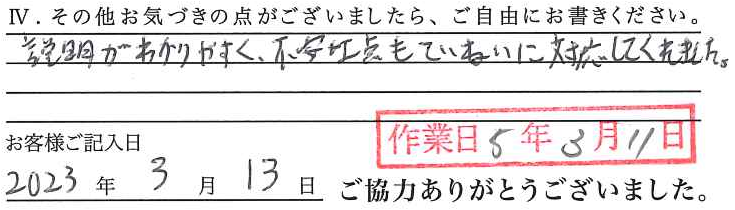 Ⅳ．その他お気づきの点がございましたら、ご自由にお書きください。
説明がわかりやすく、不安な点もていねいに対応してくれました。
作業日5年3月11日
お客様ご記入日
2023年3月13日
ご協力ありがとうございました。